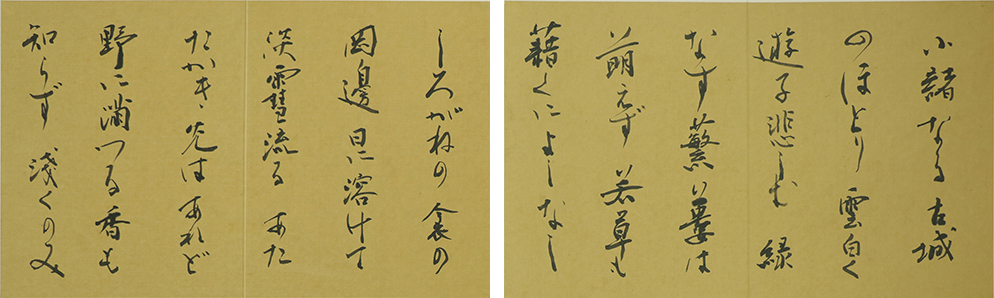 小諸なる古城
のほとり 雲白く
遊子悲しむ 緑
なす蘩蔞は
萌えず 若草も
藉くによしなし
しろがねの衾の
岡邊 日に溶けて
淡雪流る あた
たかき光はあれど
野に滿つる香も
知らず 淺くのみ